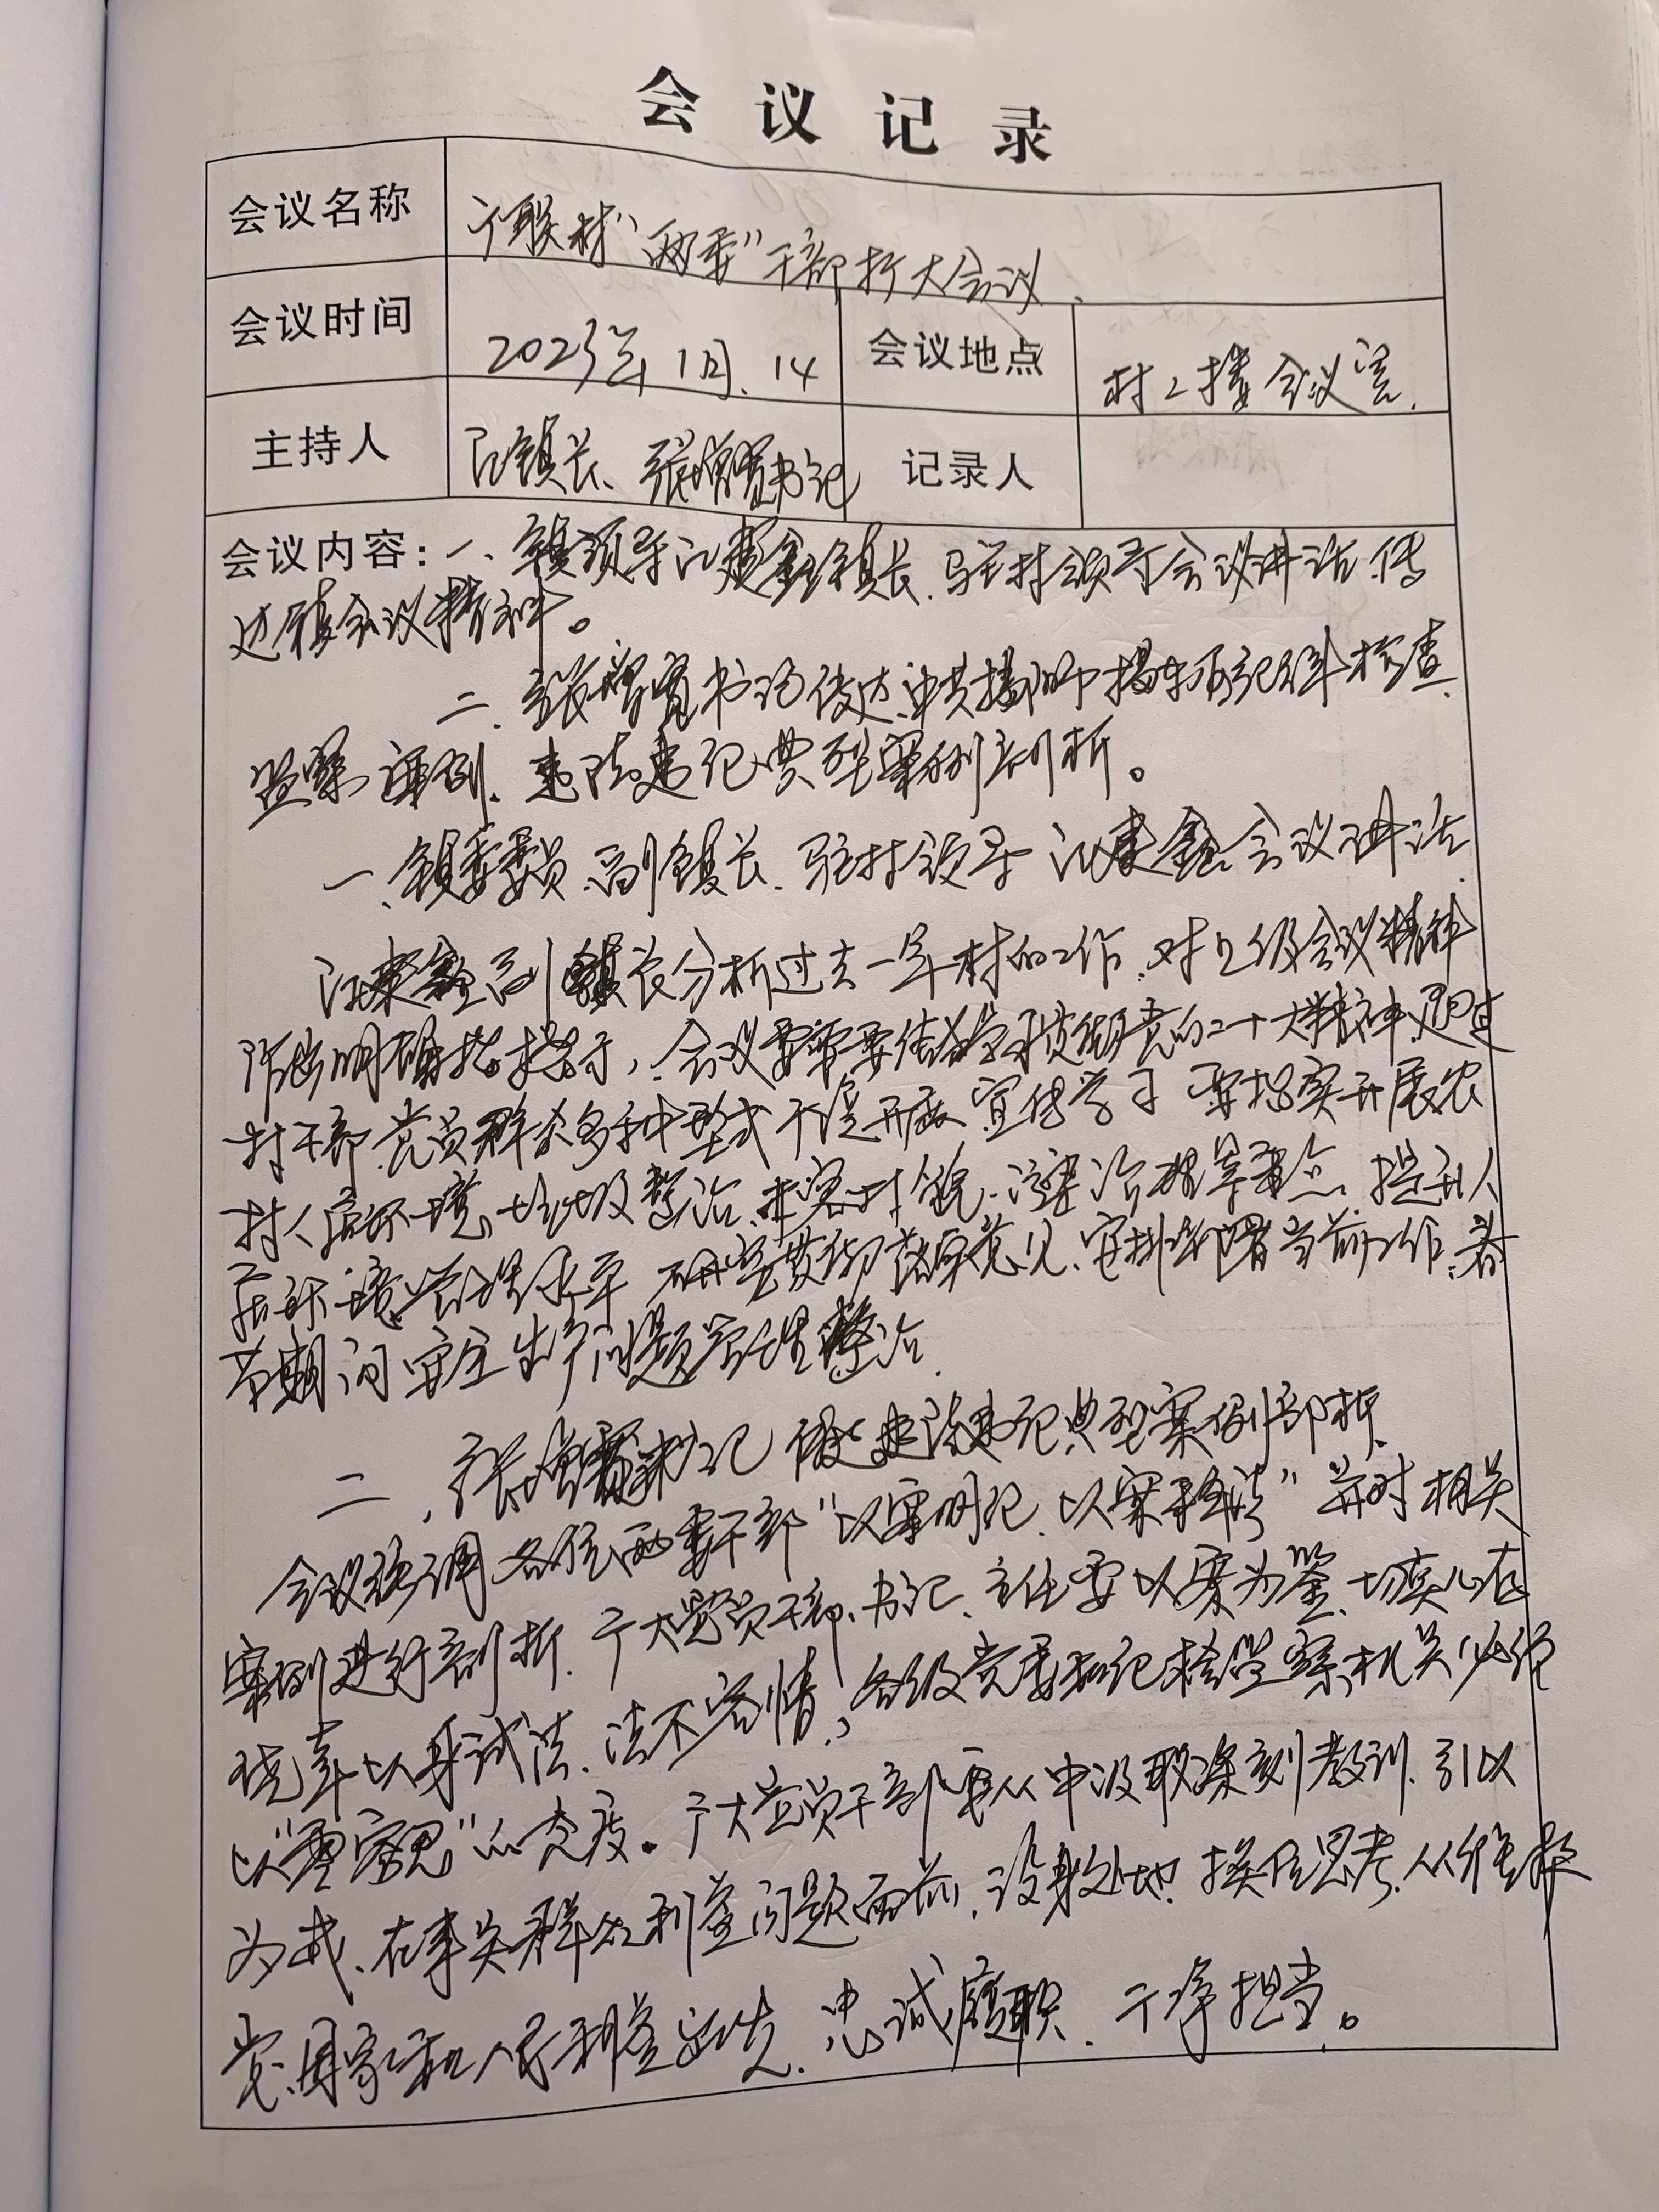 会议记录
会议名称 广联村“两委”干部扩大会议.
会议时间 2023年1月.14 会议地点 村2楼会议室.
主持人 镇长、张增贤书记 记录人
会议内容：一、镇领导江建鑫镇长.驻村领导会议讲话.传
达镇会议精神。
二、张增贤书记传达.中共揭阳市揭东区纪律检查
监察 违法违纪典型案例剖析。
一、镇委委员、副镇长、驻村领导 江建鑫会议讲话
江建鑫副镇长分析过去一年村的工作.对上级会议精神
作出明确指示，会议要求要传达学习贯彻党的二十大精神.通过
村干部党员群众多种型式 开展宣传学习 要抓实开展农
村人居环境.垃圾整治. 村貌. 提升人
居环境管理水平 研究贯彻落实意见、安排部署当前工作.春
节期间安全生产问题管理整治.
二、张增贤书记 传达违法违纪典型案例剖析.
会议强调 各位两委干部“以案明纪、以案释法”并对相关
案例进行剖析.广大党员干部、书记、主任要以案为鉴、切实心存
以身试法、法不容情，各级党委和纪检监察机关必给
以“零容忍”的态度。广大党员干部要从中汲取深刻教训.引以
为戒、在事关群众利益问题面前、设身处地.换位思考.从维护
党、国家和人民利益出发.忠诚履职.干净担当。